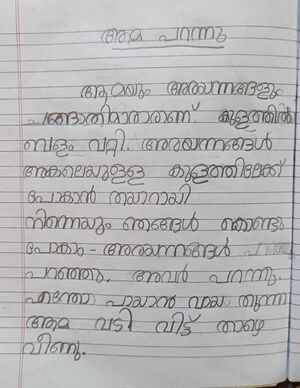 ആമ പറന്നു
ആമയും അരയന്നങ്ങളും
ചങ്ങാതിമാരാണ്. കുളത്തിൽ
വെള്ളം വറ്റി. അരയന്നങ്ങൾ
അകലെയുള്ള കുളത്തിലേക്ക്
പോകാൻ തയാറായി
നിന്നെയും ഞങ്ങൾ കൊണ്ടു
പോകാം - അരയന്നങ്ങൾ
പറഞ്ഞു. അവർ പറന്നു.
എന്തോ പറയാൻ വായ തുറന്ന
ആമ വടി വിട്ട് താഴെ
വീണു.